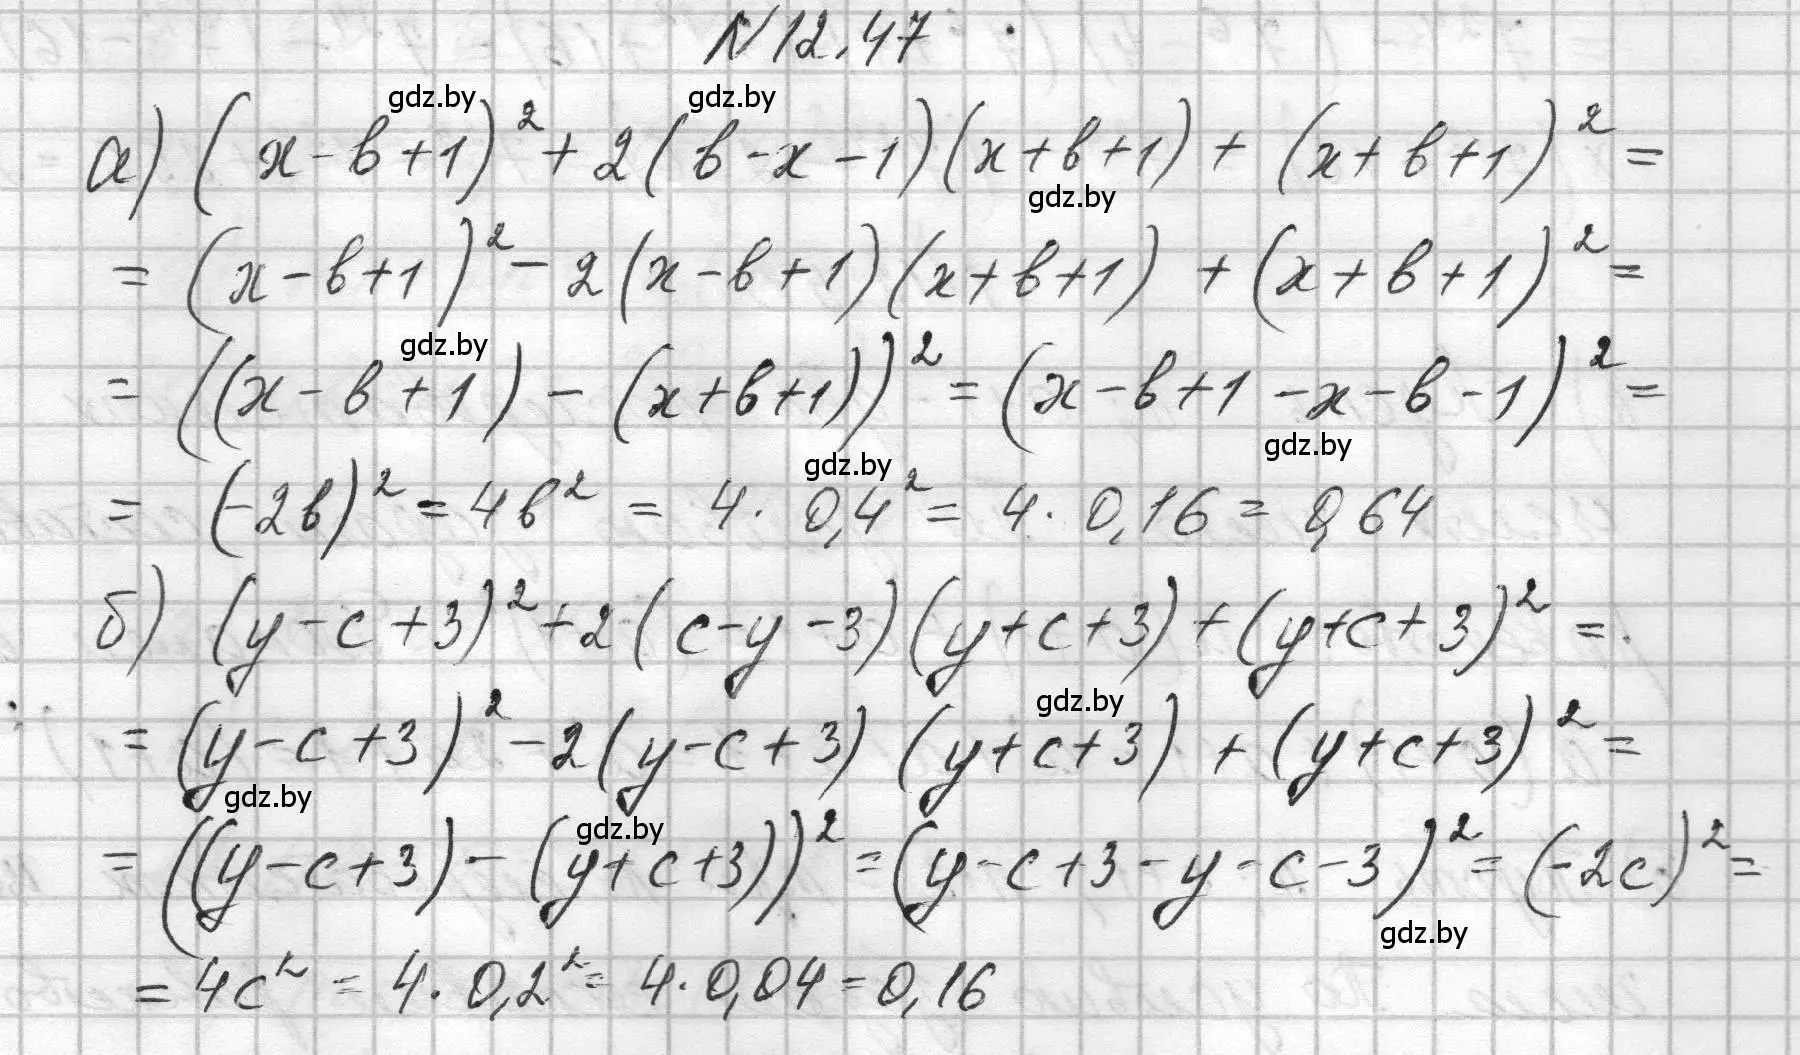 N12.47
а) (x-в+1)² + 2(в-x-1)(x+в+1) + (x+в+1)² =
= (x-в+1)² - 2(x-в+1)(x+в+1) + (x+в+1)² =
= ((x-в+1) - (x+в+1))² = (x-в+1-x-в-1)² =
= (-2в)² = 4в² = 4 · 0,4² = 4 · 0,16 = 0,64
б) (y-c+3)² + 2(c-y-3)(y+c+3) + (y+c+3)² =
= (y-c+3)² - 2(y-c+3)(y+c+3) + (y+c+3)² =
= ((y-c+3) - (y+c+3))² = (y-c+3-y-c-3)² = (-2c)² =
= 4c² = 4 · 0,2² = 4 · 0,04 = 0,16
gdz.by
gdz.by
gdz.by
gdz.by
gdz.by
gdz.by
gdz.by
gdz.by
gdz.by
gdz.by